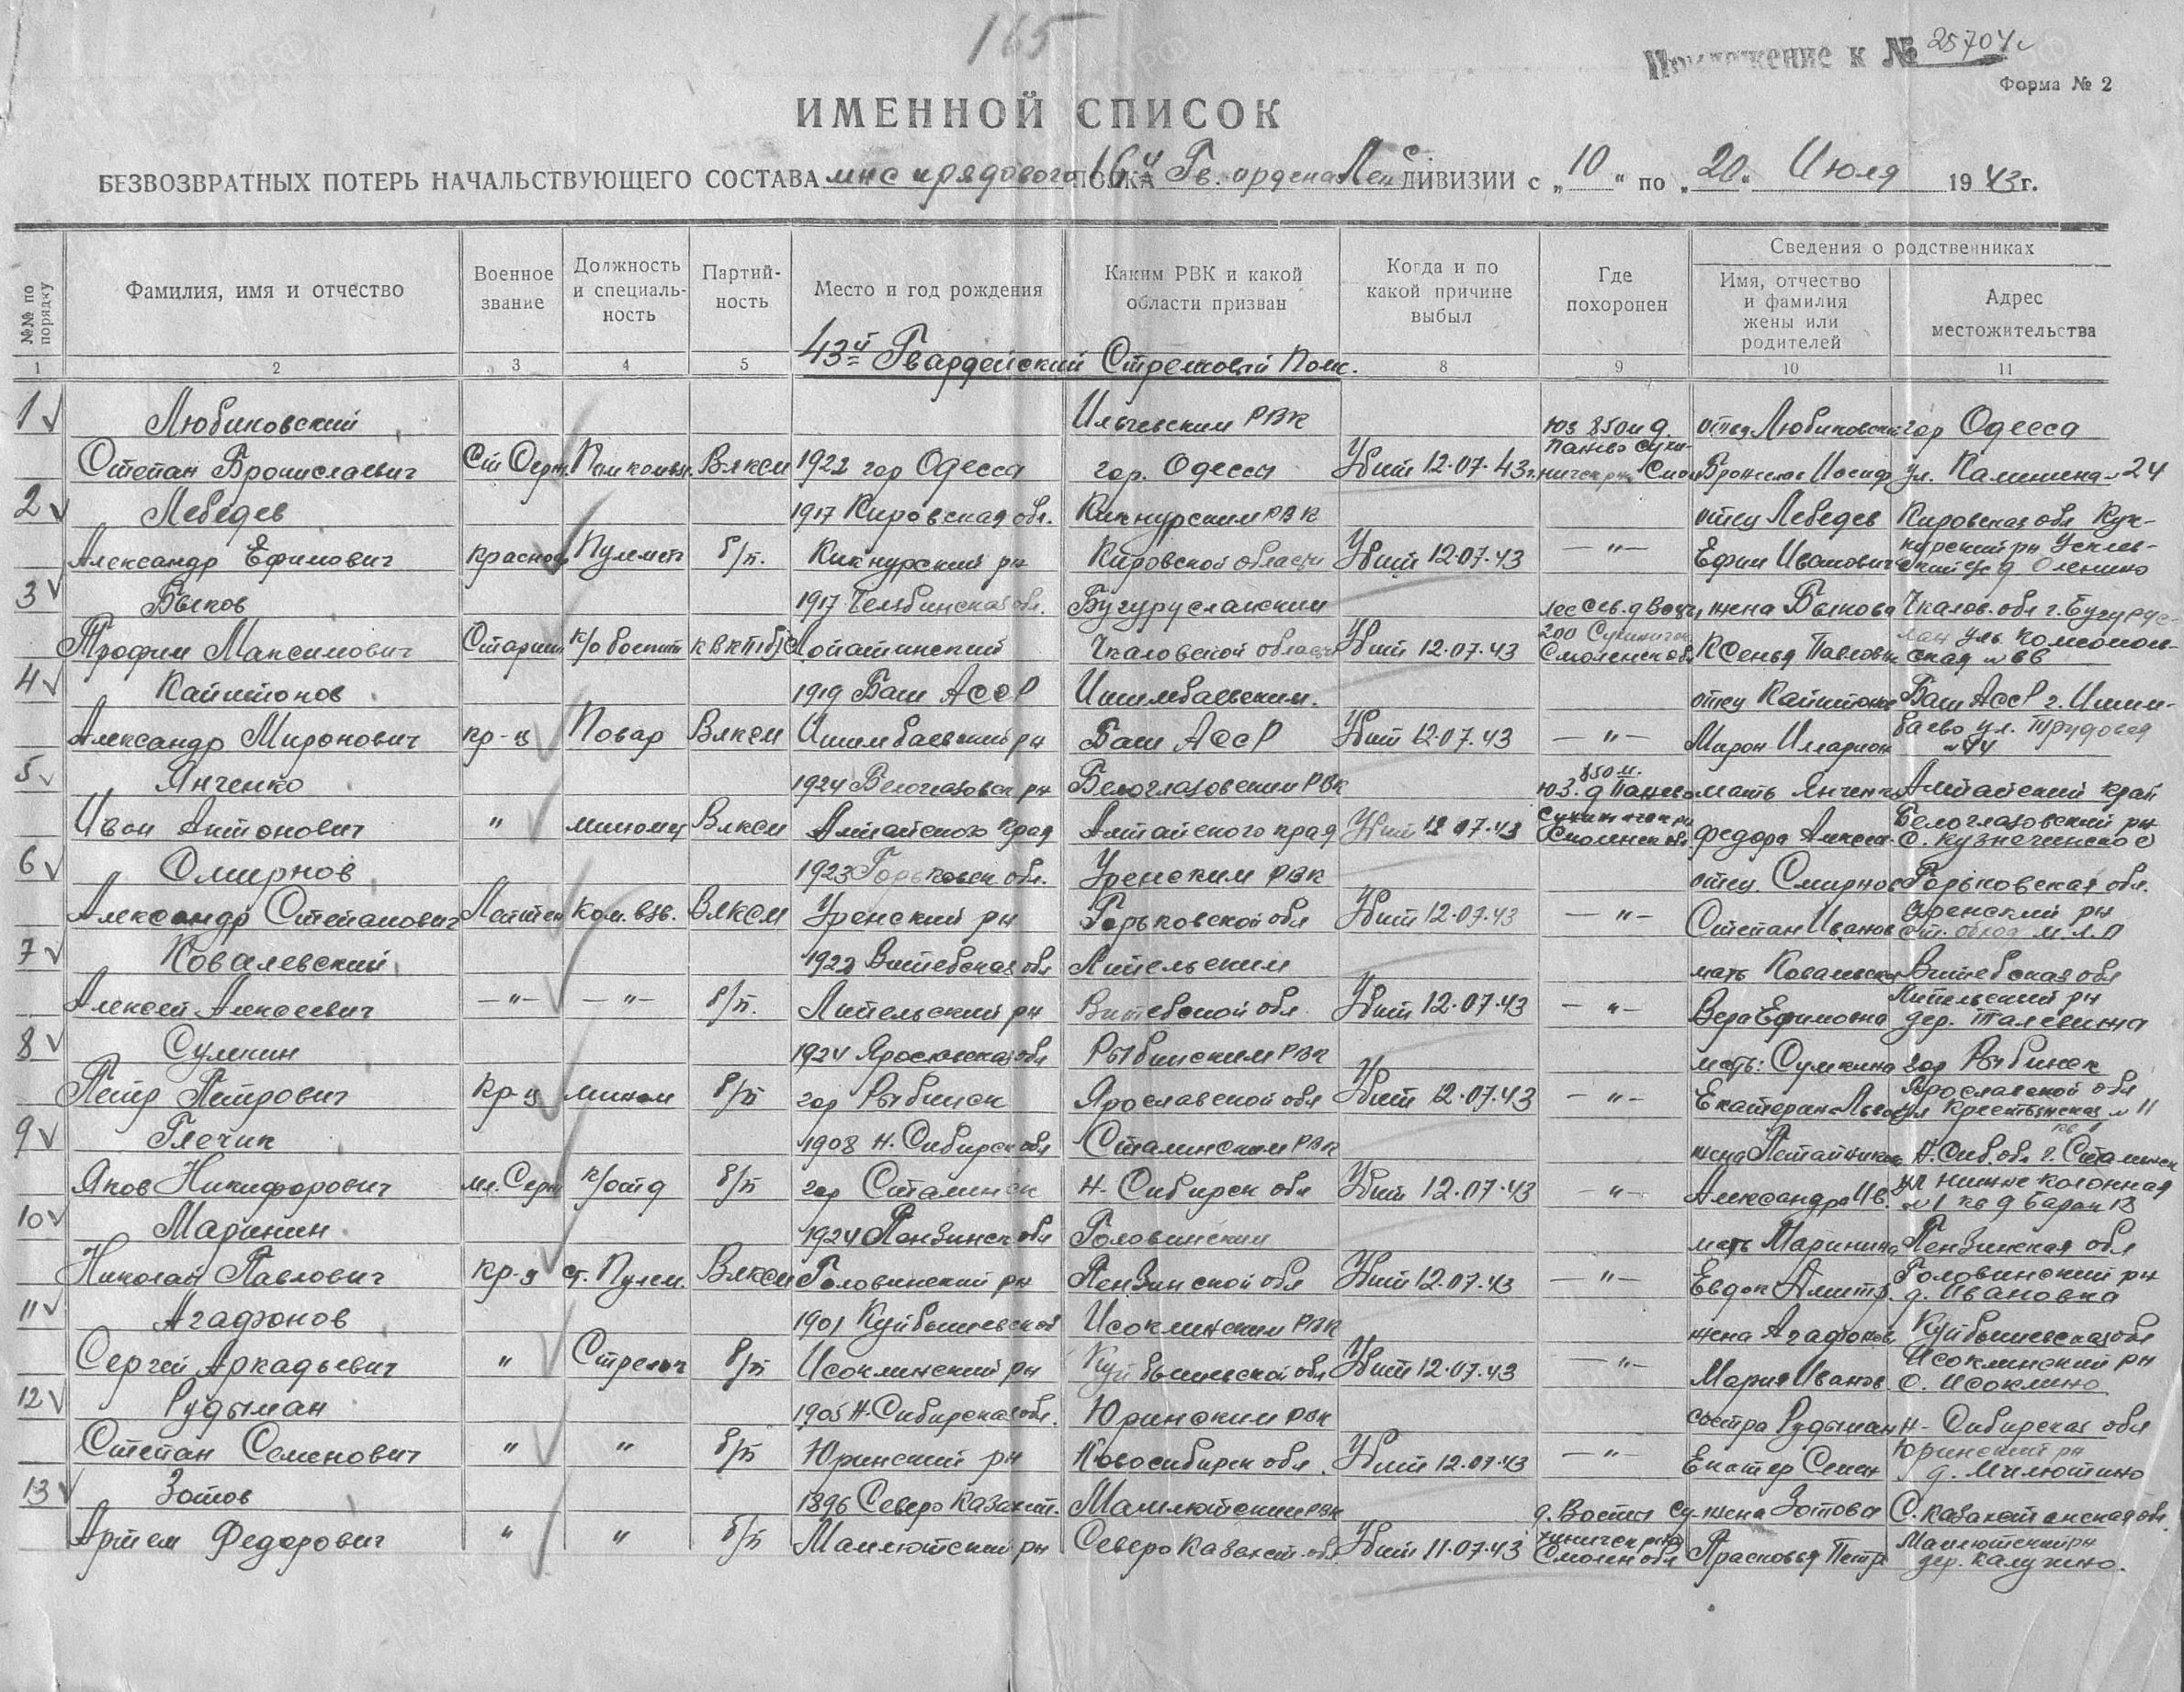 165
Приложение к № 25704
Форма № 2
ИМЕННОЙ СПИСОК
БЕЗВОЗВРАТНЫХ ПОТЕРЬ НАЧАЛЬСТВУЮЩЕГО СОСТАВА мнс и рядового ПОЛКА 16й Гв. ордена Лен ДИВИЗИИ с „10“ по „20“ Июля 1943 г.
№№ по порядку
Фамилия, имя и отчество
Военное звание
Должность и специаль-ность
Партий-ность
Место и год рождения
Каким РВК и какой области призван
Когда и по какой причине выбыл
Где похоронен
Сведения о родственниках
Имя, отчество и фамилия жены или родителей
Адрес местожительства
1 2 3 4 5 8 9 10 11
43й Гвардейский Стрелковый Полк.
1 Любиковский Ильчевским РВК юз 850 м д. отец Любиковски гор Одесса
Степан Брониславич Ст Серж. Помкомвз. Влксм 1922 гор Одесса гор. Одесса Убит 12.07.43г. Иосиф ул. Калинина 24
2 Лебедев 1917 Кировская обл. Кикнурским РВК отец Лебедев Кировская обл Кик-
Александр Ефимович Красноа Пулемет б/п. Кикнурский рн Кировской области Убит 12.07.43 —"— Ефим Иванович нурский рн
3 Быков 1917 Челябинская обл. Бугурусланским жена Быкова Чкалов. обл г. Бугурус-
Трофим Максимович Старши Чкаловской области Убит 12.07.43 Смоленск обл Ксенья Павловн лан уль Комсомоль-ская
4 Кайштонов 1919 Баш АССР Ишимбаевским. отец Кайштонов Баш АССР г. Ишим-
Александр Миронович кр-ц Повар Влксм Ишимбаевский рн Баш АССР Убит 12.07.43 —"— Мирон Иларион баево ул. Трудовая
5 Янченко 1924 Белоглазовск рн Белоглазовским РВК 850 м. юз. д Панево мать Янченко Алтайский край
Иван Антонович " миномц Влксм Алтайского края Алтайского края Убит 12.07.43 Смоленск обл Федора Алексе. Белоглазовский рн
6 Смирнов 1923 Горьковск обл. Уренским РВК отец Смирнов Горьковская обл.
Александр Степанович Лейтен Ком. взв. Влксм Уренский рн Горьковской обл Убит 12.07.43 —"— Степан Иванов Уренский рн
7 Ковалевский 1922 Витебская обл Липельским мать Ковалевска Витебская обл
Алексей Алексеевич —"— —"— б/п. Липельский рн Витебской обл Убит 12.07.43 —"— Вера Ефимовна Липельский рн дер.
8 Сумкин 1924 Ярославская обл Рыбинским РВК мать: Сумкина гор Рыбинск
Петр Петрович Кр-ц мином б/п гор Рыбинск Ярославской обл Убит 12.07.43 —"— Екатерина Ярославской обл ул Крестьянская 11
9 Глечик 1908 Н. Сибирск обл Сталинским РВК жена Н. Сиб. обл г. Сталинск
Яков Никифорович мл. Серж к/отд б/п гор Сталинск Н-Сибирск обл Убит 12.07.43 —"— Александра Ив. ул нижне колонная 1 кв 9 барак 13
10 Маринин 1924 Пензинск обл Головинским мать Маринина Пензинская обл
Николай Павлович кр-ц ст. Пулем. Влксм Головинский рн Пензинской обл Убит 12.07.43 —"— Евдок Дмитр. Головинский рн д. Ивановка
11 Агафонов 1901 Куйбышевской Исоклинским РВК жена Агафонов Куйбышевская обл
Сергей Аркадьевич " Стрелоч б/п Исоклинский рн Куйбышевской обл Убит 12.07.43 —"— Мария Иванов. Исоклинский рн с. Исоклино
12 Рудыман 1905 Н-Сибирская обл. Юринским РВК сестра Рудыман Н-Сибирская обл
Степан Семенович " " б/п Юринский рн Новосибирск обл. Убит 12.07.43 —"— Екатер Семен Юринский рн д. Милютино
13 Зотов 1896 Северо Казахст. Мамлютским РВК жена Зотова С. Казахстанская обл.
Артем Федорович " " б/п Мамлютский рн Северо Казахст. обл. Убит 11.07.43 Смолен обл Прасковья Петр Мамлютский рн дер. Калугино.